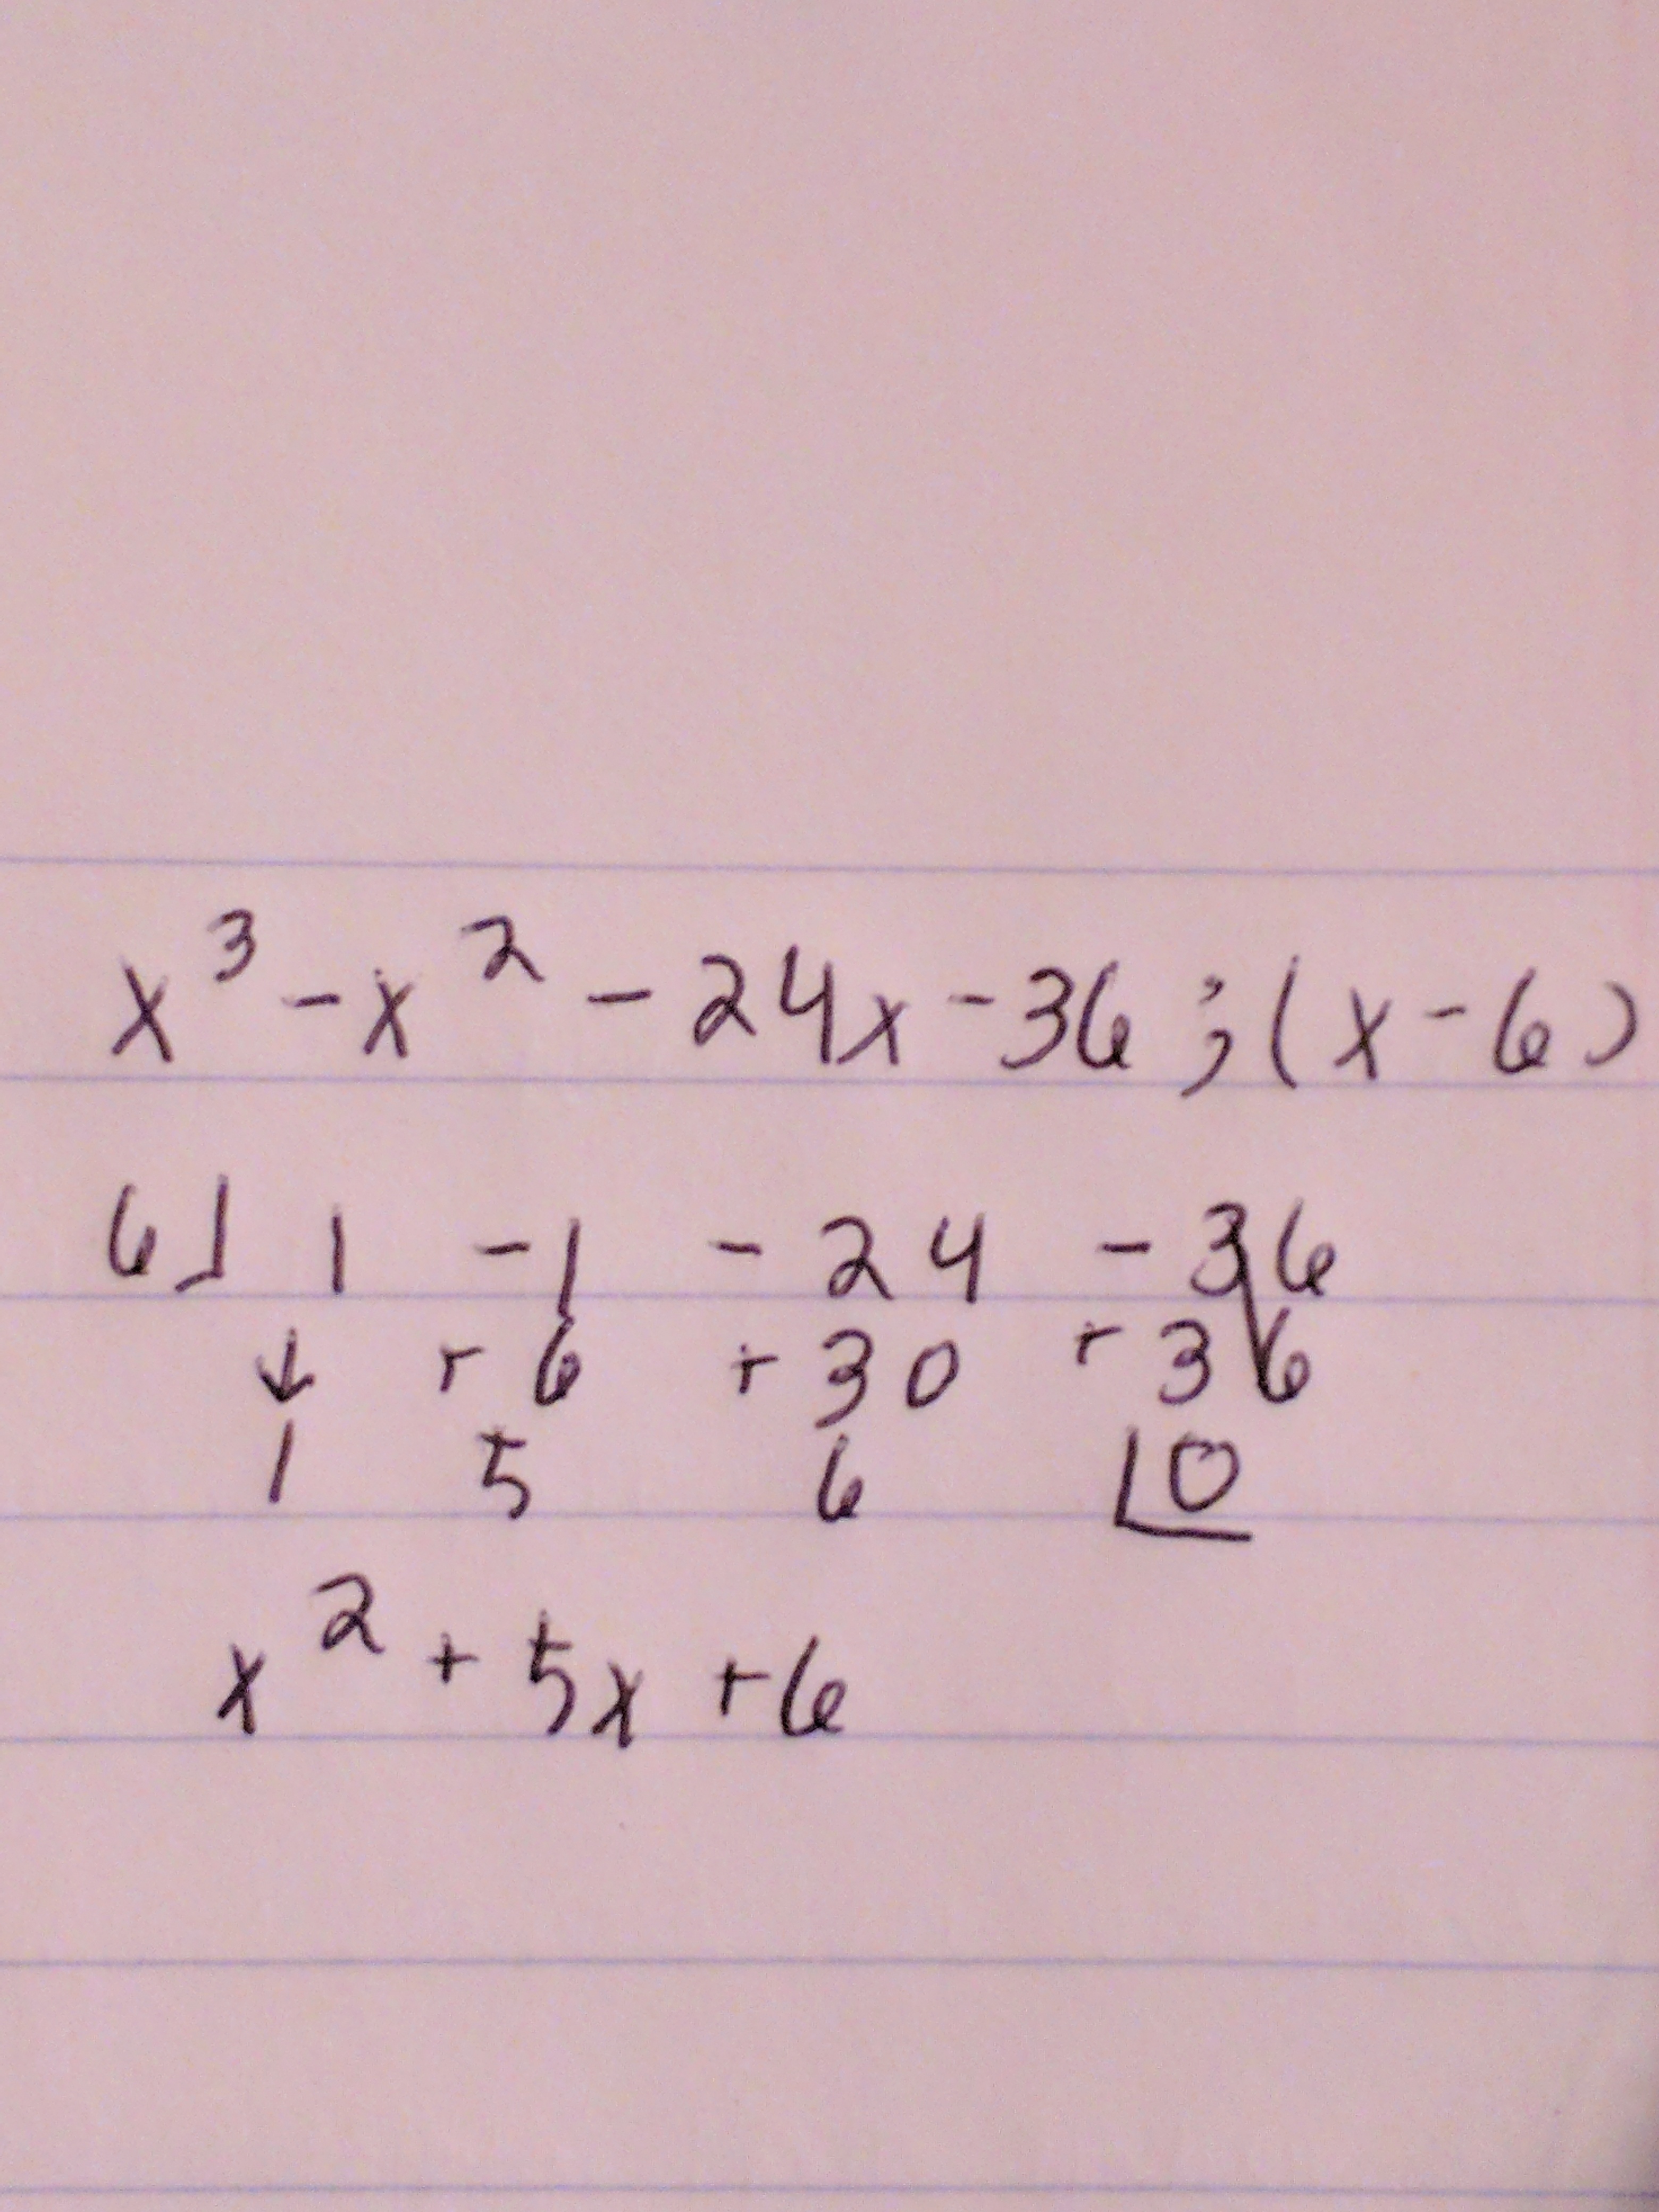 x³ - x² - 24x - 36 ; (x - 6)
6⌋ 1 -1 - 24 - 36
↓ + 6 + 30 + 36
1 5 6 ⌊0
x² + 5x + 6